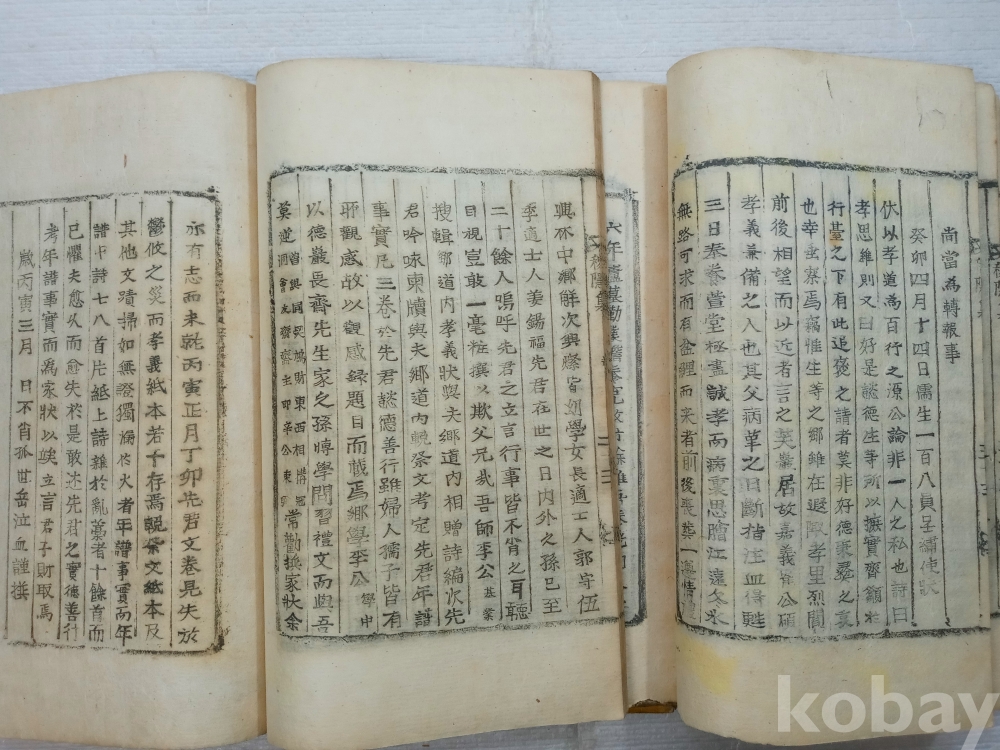 尚當爲轉報事
癸卯四月十四日儒生一百八員呈浦使狀
伏以孝道爲百行之源公論非一人之私也詩曰
孝思維則又曰好是懿德生等所以摭實齊籲於
行臺之下有此追褒之請者莫非好德秉彛之衷
也幸垂察焉竊惟生等之鄕雖在遐陬孝里烈閭
前後相望而以近者言之美鰲居故嘉義肯公碩
孝義兼備之人也其父病革之日斷指注血得甦
三日泰養萱堂極盡誠孝而病裏思膾江遠冬氷
無路可求而有金鯉而来者前後喪葬一遵情
六年廬墓
興不中鄕解次興
季道士人姜錫福先君在世之日内外之孫已至
二十餘人嗚呼先君之立言行事皆不肖之耳聽
目視豈敢一毫粧撰以欺父兄哉吾師李公基業
搜輯鄕道内孝義狀與夫鄕道内相贈詩編次先
君吟咏柬牘與夫鄕道内輓祭文考定先君年譜
事實凡三卷於先君懿德善行雖婦人孺子皆有
耶觀感故以觀感錄題目而戴焉鄕學李公擧中
以德巖畏齋先生家之孫博學問習禮文而與吾
莫逆 常勸換家狀余
亦有志而未就丙寅正月丁卯先君文卷見失於
鬱攸之災而孝義紙本若干存焉輓祭文紙本及
其他文蹟掃如無證獨漏於火者年譜事實而年
譜中詩七八首片紙上詩雜於亂藁者十餘首而
已懼夫愈久而愈失於是敢述先君之實德善行
考年譜事實而爲家狀以俟立言君子財取焉
歲丙寅三月 日不肖孤世岳泣血謹撰
kobay